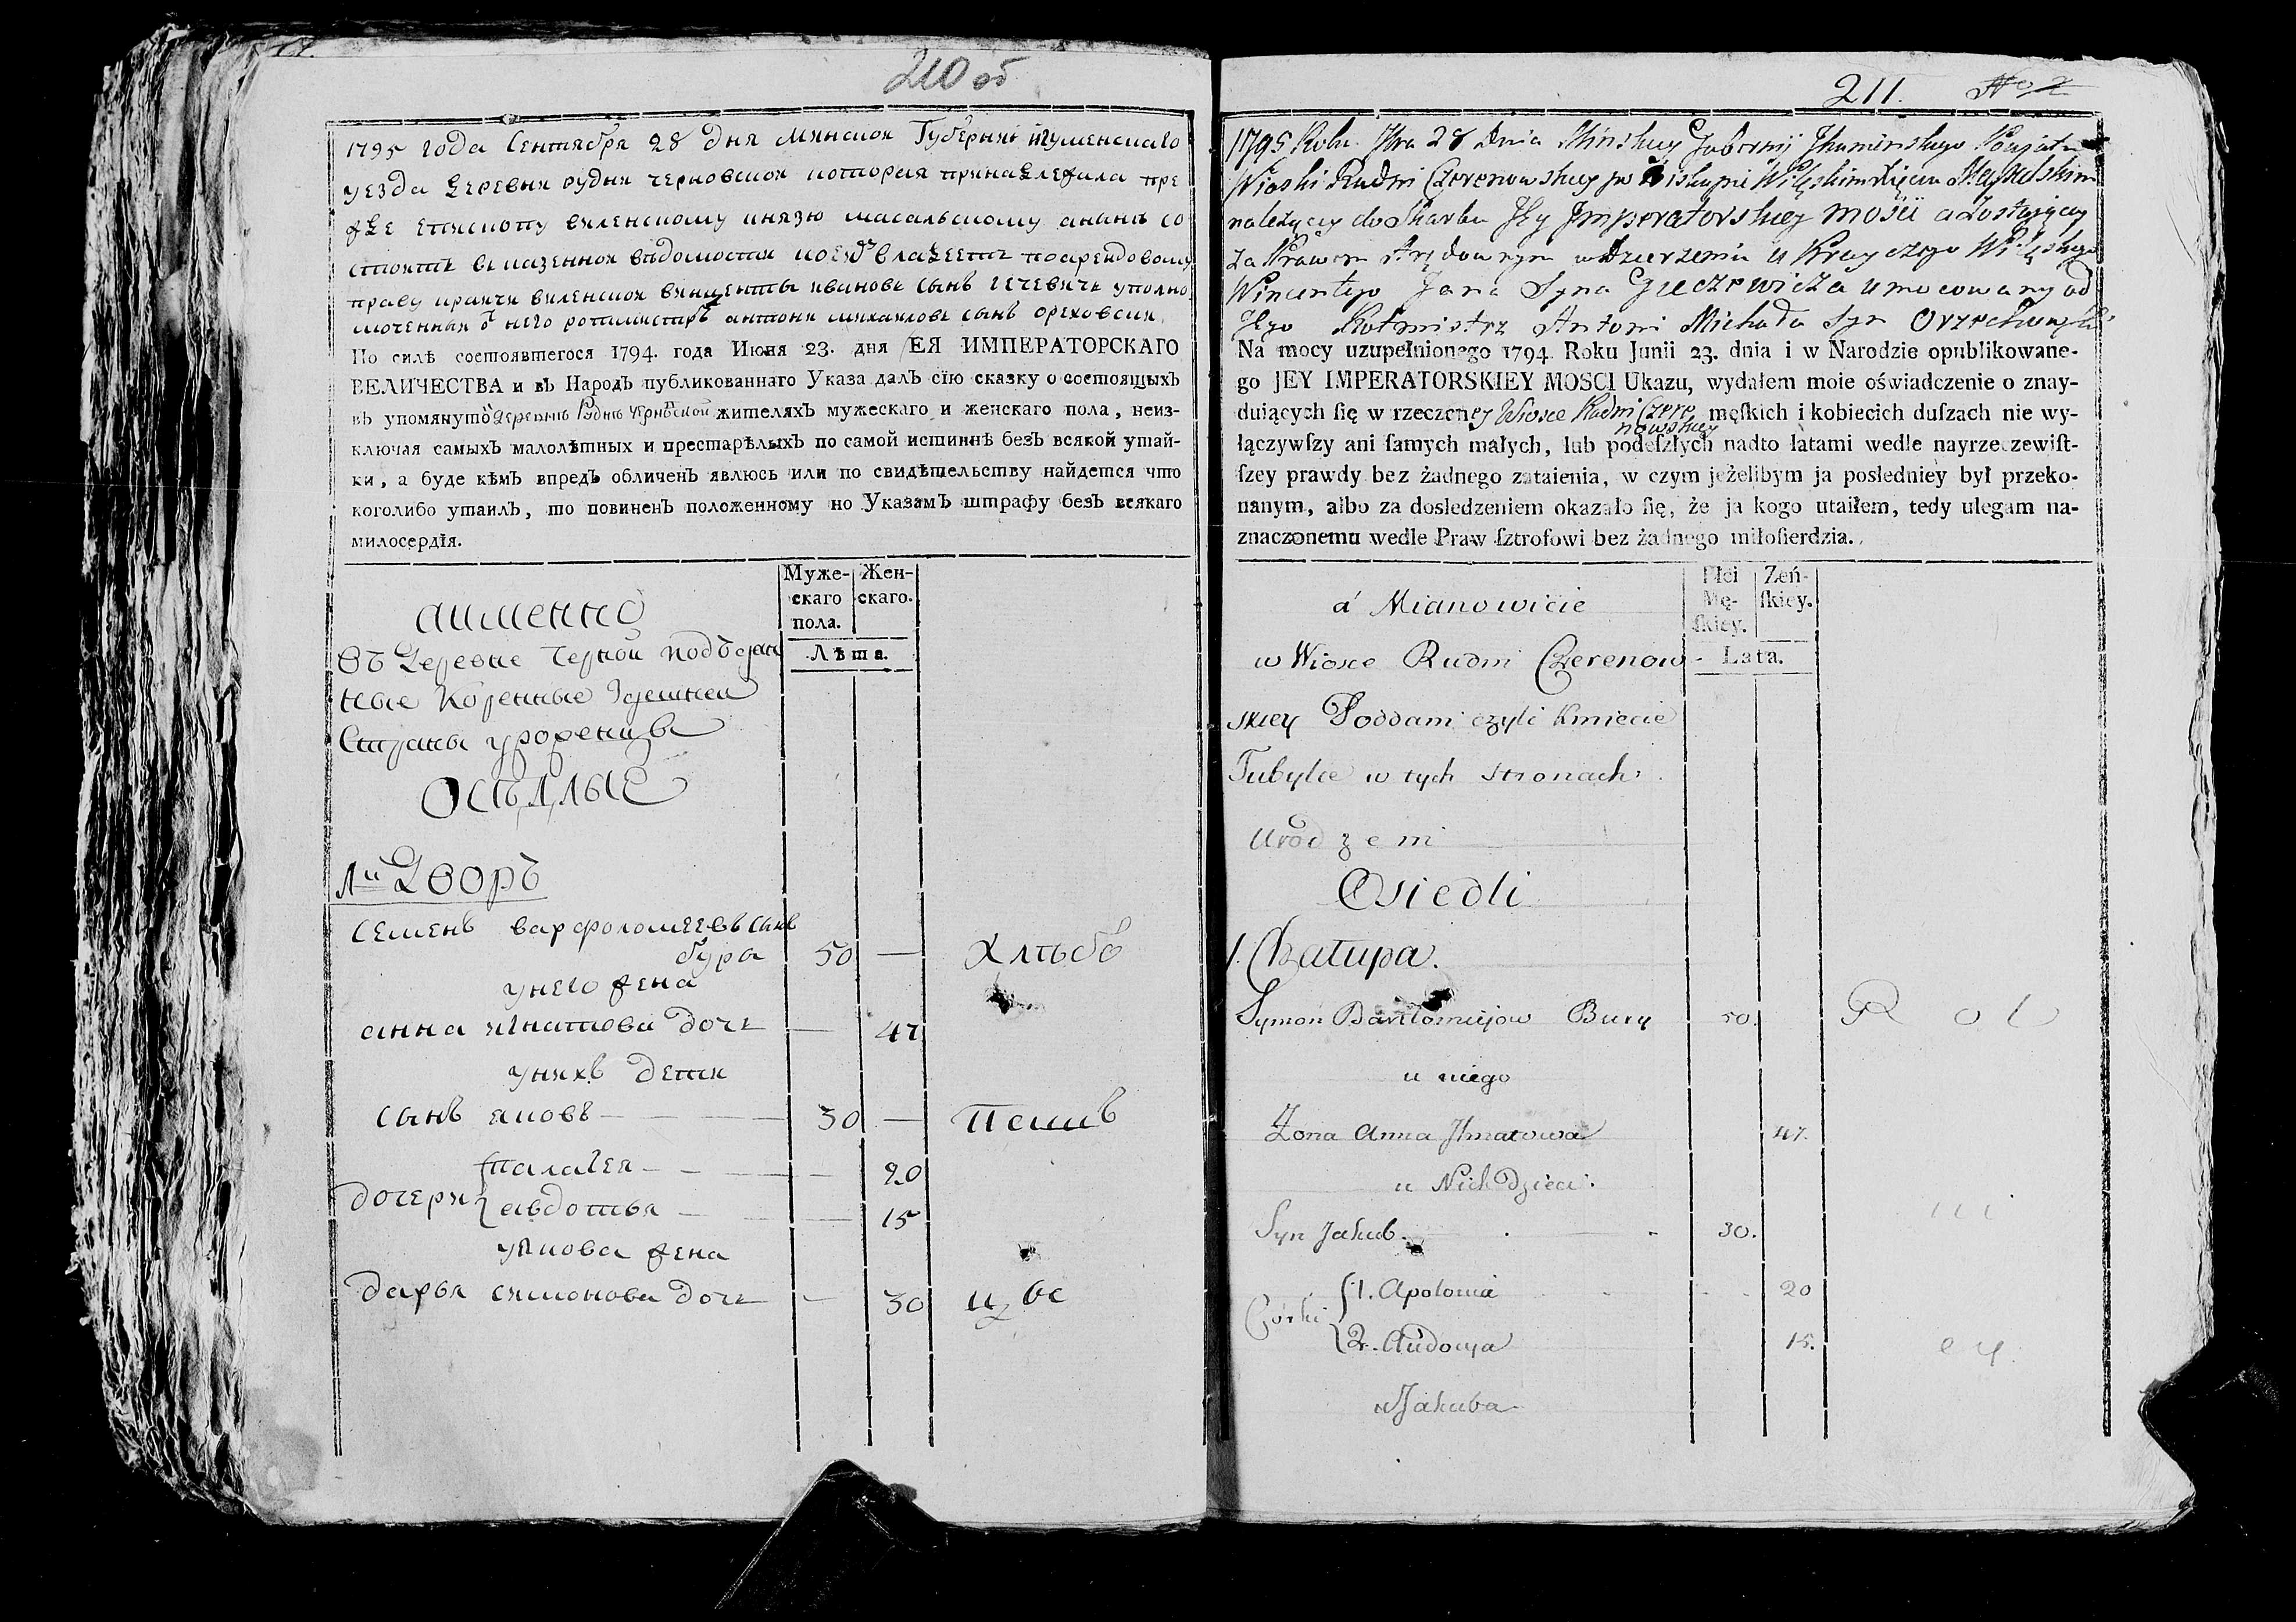 210 об
1795 года Сентября 28 дня Минской Губернии Игуменскаго
уезда деревни рудни черновской которая принадлежала пре
жде епископу виленскому князю масальскому а нынѣ со
стоитъ в казенной вѣдомости коей владеетъ по арендовому
праву крайчи виленской винценты ивановъ сынъ гечевичъ уполно
моченный от него ротмистръ антони михаиловъ сынъ ореховски
По силѣ состоявшегося 1794. года Июня 23. дня ЕЯ ИМПЕРАТОРСКАГО
ВЕЛИЧЕСТВА и въ Народъ публикованнаго Указа далъ сїю сказку о состоящыхъ
въ упомянутой деревнѣ Руднѣ черновской жителяхъ мужескаго и женскаго пола, неиз-
ключая самыхъ малолѣтныхъ и престарѣлыхъ по самой истиннѣ безъ всякой утай-
ки, а буде кѣмъ впредъ обличенъ явлюсь или по свидѣтельству найдется что
коголибо утаилъ, то повиненъ положенному по Указамъ штрафу безъ всякаго
милосердїя.
Муже-
скаго
пола.
Жен-
скаго.
Лѣта.
а именно
Въ Деревне Черной подъдан
ные Коренные Здешней
Страны уроженцы
Оседлые
1й Дворъ
семенъ варфоломеевъ сынъ
бура 50 — Хлѣбо
у него жена
анна игнатова дочь — 47
у нихъ дети
сынъ яковъ — 30 — пашъ
дочери
палагея — 20
авдотья — 15
у якова жена
дарья симонова дочь — 30 цы
211. No 2
1795 Roku 7bra 28 Dnia Mińskiey Gubernij Ihumenskego Powiatu
Wioski Rudni Czerenowskiey po Biskupie Wileńskim Xięciu Massalskim
należącey do Skarbu Jey Imperatorskiey Mości a zostaiącey
za Prawem Arędownym w dzierżeniu u Krayczego Wileńskiego
Wincentego Jana Syna Gieczewicza umocowany od
Jego Rotmistrz Antoni Michała Syn Orzechowski
Na mocy uzupełnionego 1794 Roku Junii 23. dnia i w Narodzie opublikowane-
go JEY IMPERATORSKIEY MOSCI Ukazu, wydałem moie oświadczenie o znay-
duiących ſię w rzeczoney Wiosce Rudni Czere męſkich i kobiecich duſzach nie wy-
nowskiey
łączywſzy ani ſamych małych, lub podeſzłych nadto latami wedle nayrzeczewiſt-
ſzey prawdy bez żadnego zataienia, w czym jeżelibym ja posledniey był przeko-
nanym, albo za dosledzeniem okazało ſię, że ja kogo utaiłem, tedy ulegam na-
znaczonemu wedle Praw ſztrofowi bez żadnego miłoſierdzia.
Płci
Mę-
ſkiey.
Żeń-
ſkiey.
Lata.
a Mianowicie
w Wiosce Rudni Czerenow-
skiey Poddani czyli Kmiecie
Tubylce w tych stronach
Urodzeni
Osiedli
1. Chałupa.
Symon Bartłomiejow Bury 50. Rol
u niego
Żona Anna Ihnatowa 47.
u Nich Dzieci.
Syn Jakub. 30.
Córki
1. Apolonia 20
2. Audocya 15. ey.
u Jakuba